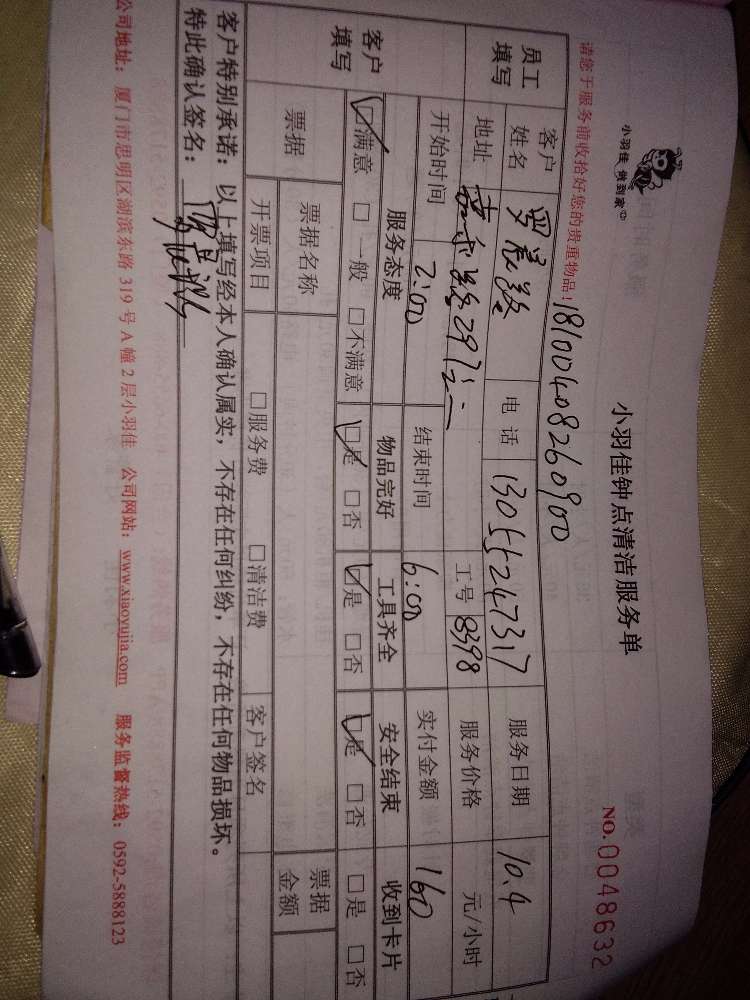 小羽佳 做到家
小羽佳钟点清洁服务单
NO.0048632
请您于服务前收拾好您的贵重物品! 18100408260900
员工填写 客户姓名 电话 13055247317 服务日期 10.4
地址 工号 8398 服务价格 元/小时
开始时间 2:00 结束时间 6:00 实付金额 160
客户填写 服务态度 物品完好 工具齐全 安全结束 收到卡片
☑满意 □一般 □不满意 ☑是 □否 ☑是 □否 ☑是 □否 □是 □否
票据 票据名称 票据金额
开票项目 □服务费 □清洁费 客户签名
客户特别承诺:以上填写经本人确认属实,不存在任何纠纷,不存在任何物品损坏。
特此确认签名:
公司地址:厦门市思明区湖滨东路 319 号 A 幢 2 层小羽佳 公司网站:www.xiaoyujia.com 服务监督热线:0592-5888123